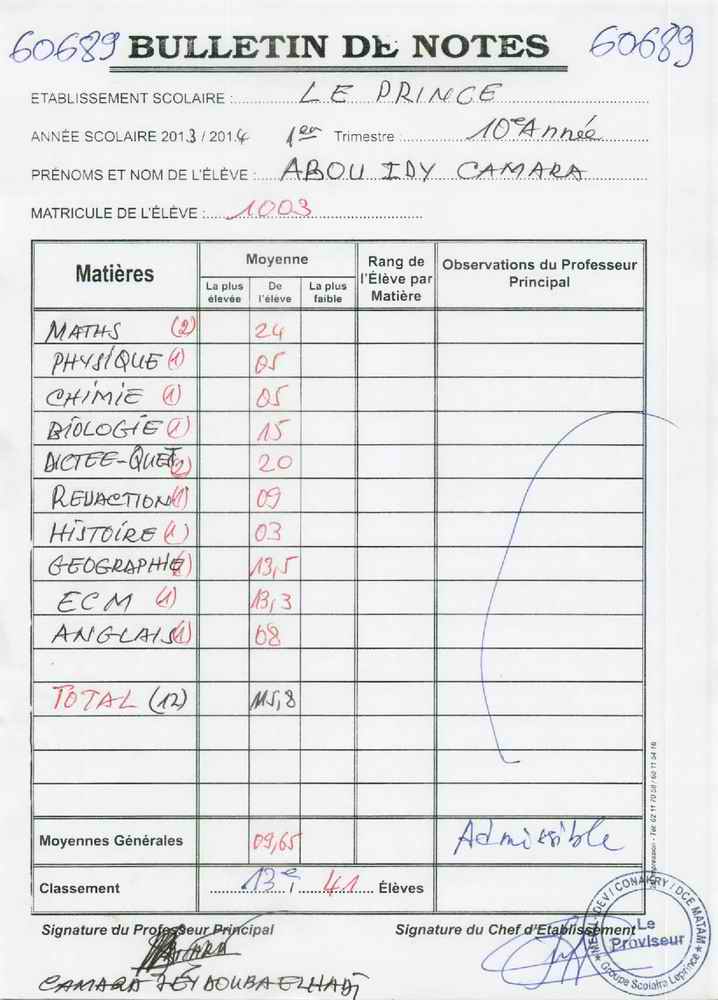 60689 BULLETIN DE NOTES 60689
ETABLISSEMENT SCOLAIRE : LE PRINCE
ANNÉE SCOLAIRE 2013 / 2014 1er Trimestre : 10e Année
PRÉNOMS ET NOM DE L'ÉLÈVE : ABOU IDY CAMARA
MATRICULE DE L'ÉLÈVE : 1003
Matières
Moyenne
La plus élevée
De l'élève
La plus faible
Rang de l'Élève par Matière
Observations du Professeur Principal
MATHS (2) 24
PHYSIQUE (1) 05
CHIMIE (1) 05
BIOLOGIE (1) 15
DICTEE-QUET (2) 20
REDACTION (1) 09
HISTOIRE (1) 03
GEOGRAPHIE (1) 13,5
ECM (1) 13,3
ANGLAIS (1) 08
TOTAL (12) 115,8
Moyennes Générales 09,65 Admissible
Classement 13e / 41 Élèves
Signature du Professeur Principal
Signature du Chef d'Etablissement
CAMARA
Le Proviseur
Groupe Scolaire Leprince